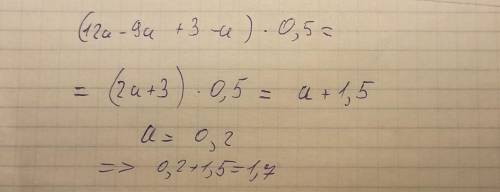 (12a - 9a + 3 - a) · 0,5 =
= (2a+3) · 0,5 = a + 1,5
a = 0,2
=> 0,2+1,5=1,7